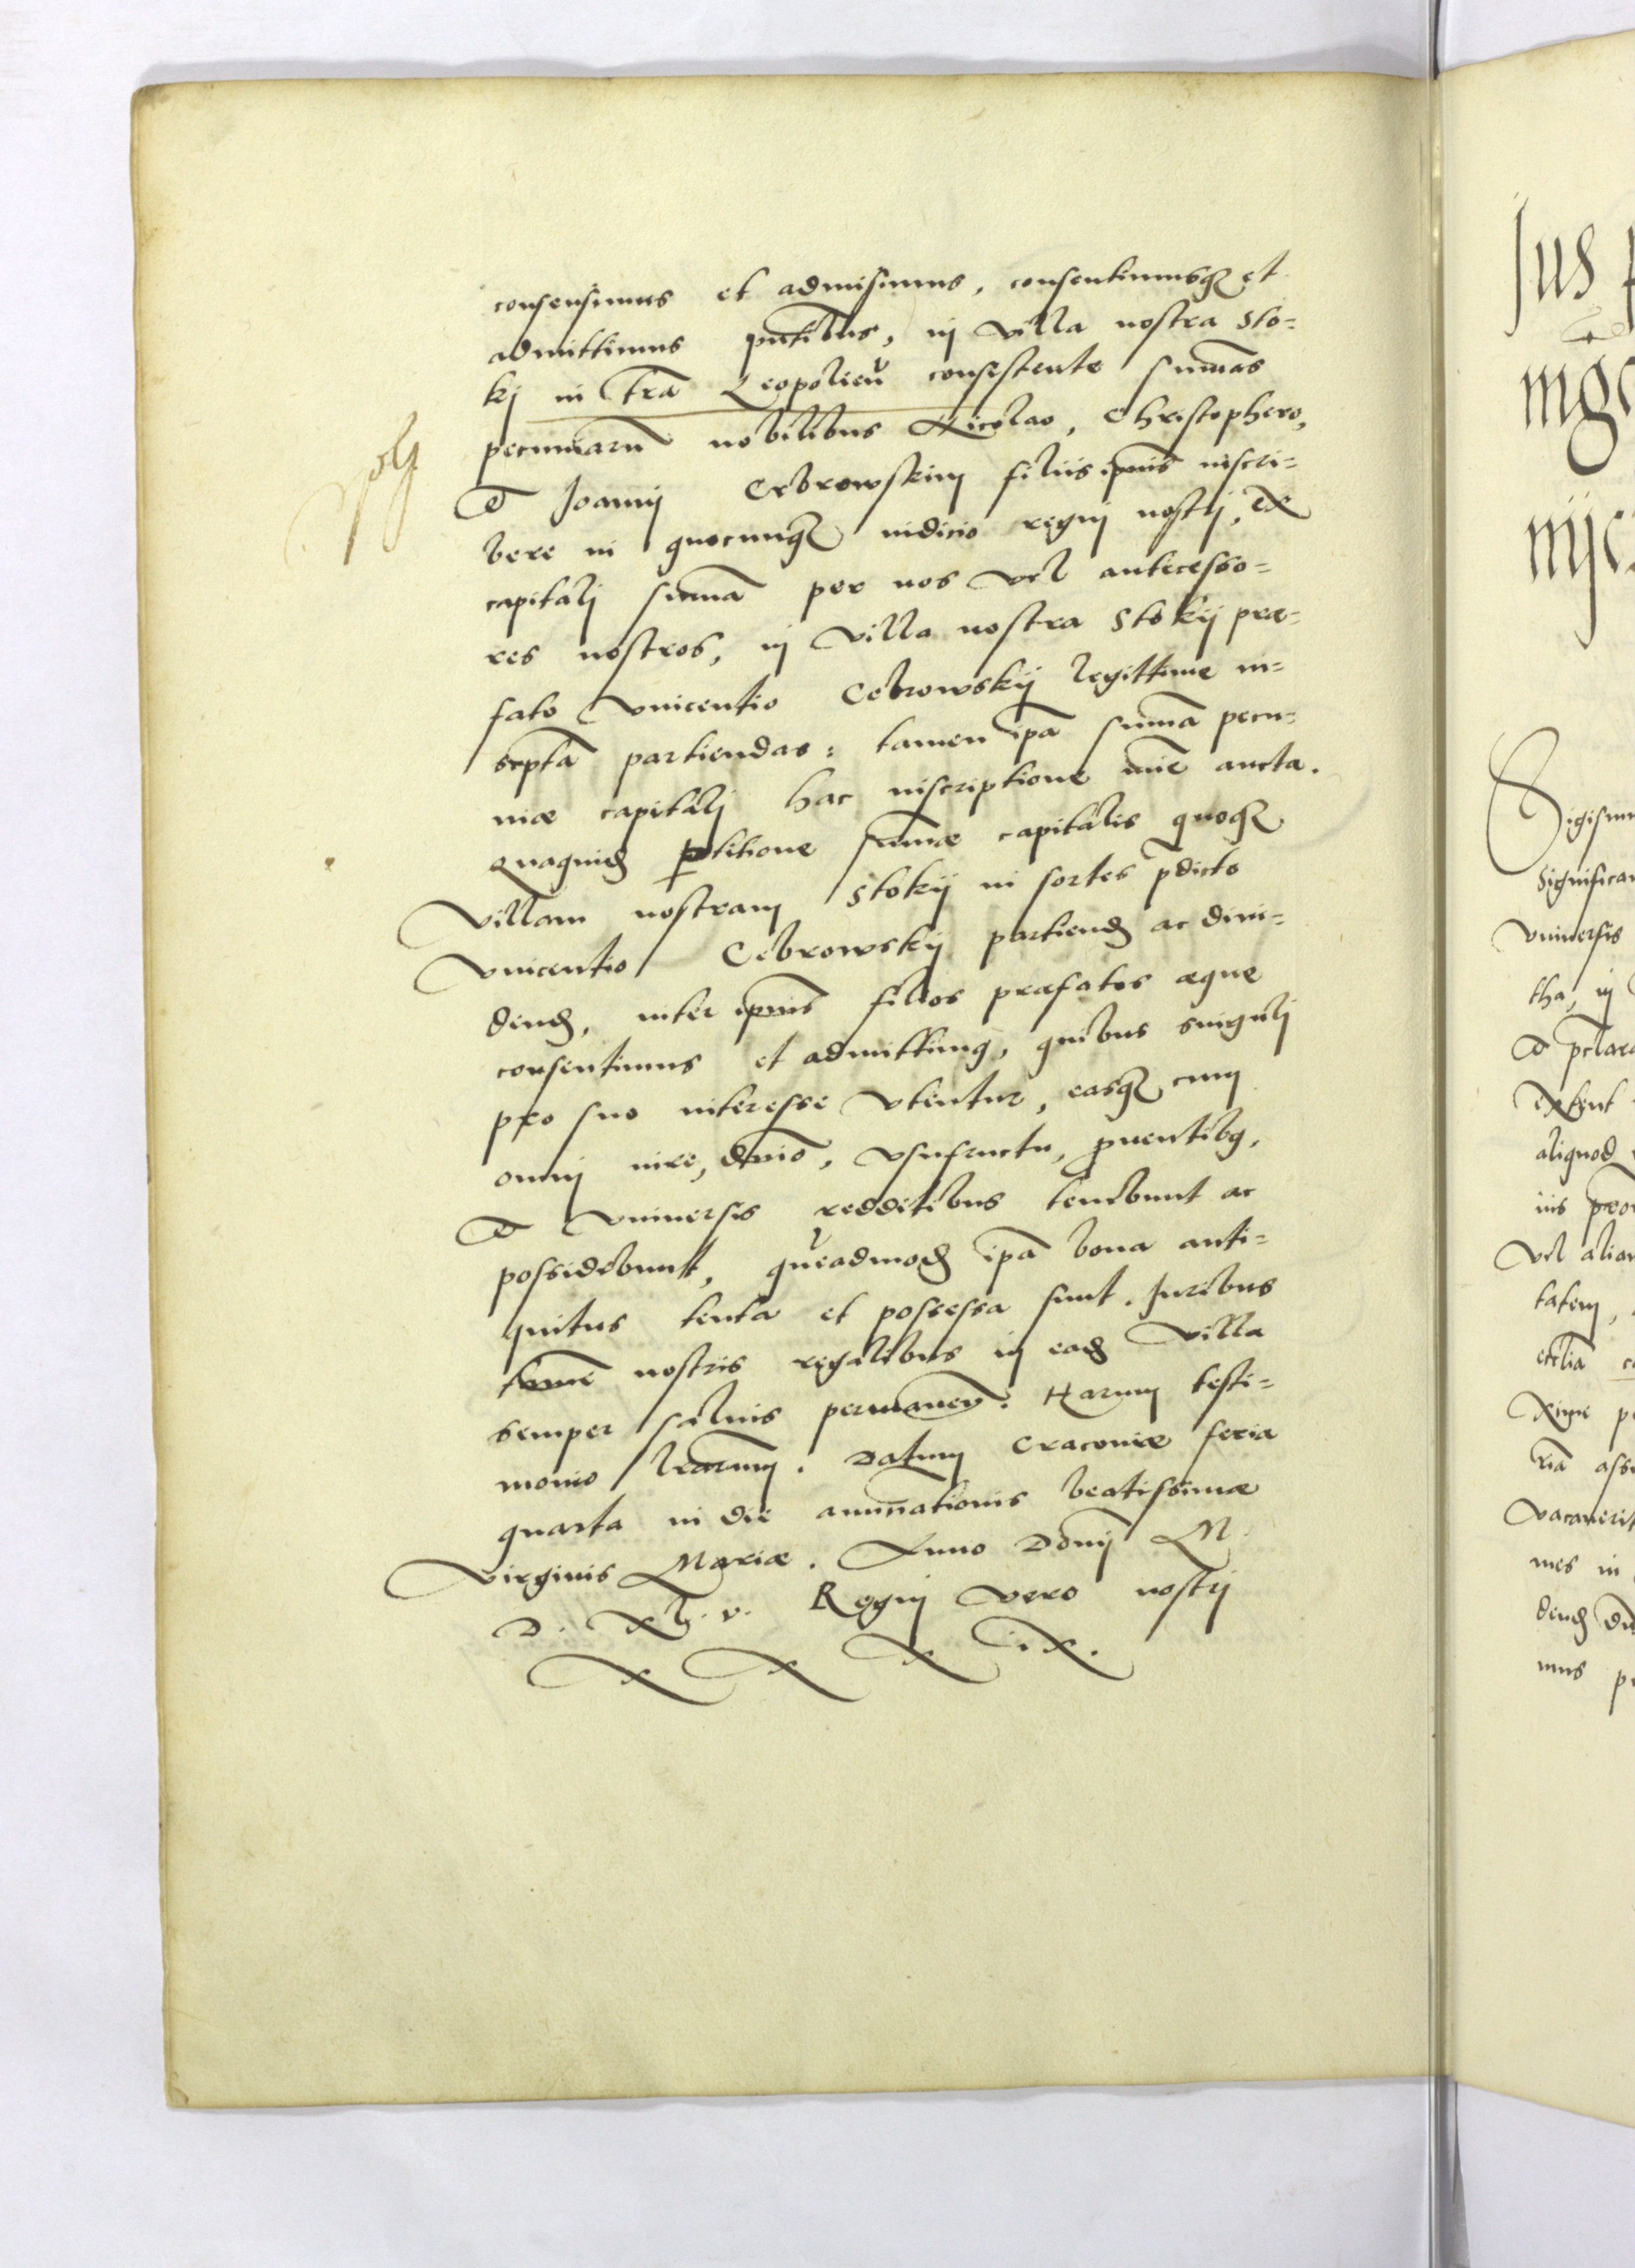 consensimus et admisimus, consentimusq₃ et
admittimus pntibus, in villa nostra Sto=
ki in tra Leopolien̄ consistente summas
pecuniarū nobilibus Nicolao, Christophero,
& Joanni Cebrowskim filiis ipius inscri=
bere in quocunq₃ iudicio regni nostri, ex
capitali summa per nos vel antecesso=
res nostros, in villa nostra Stokij præ=
fato Vincentio Cebrowskij legittime in=
scpta partiendas: tamen ipa summa pecu=
niæ capitali hac inscriptione mie aucta.
Quaquid ꝑtitione summæ capitalis quoq₃
Villam nostram Stokij in sortes pdicto
Vincentio Cebrowskij partiend ac divi=
dend, inter ipius filios præfatos æque
consentimus et admittimꝰ, quibus singuli
pro suo interesse vtentur, easq₃ cum
omni iure, dnio, vsufructu, prouentibꝰ,
& vniuersis redditibus tenebunt ac
possidebunt, queadmod ipa bona anti=
quitus tenta et possessa sunt. Juribus
tame nostris regalibus in ead Villa
semper saluis permanen̄. Harum testi=
monio lrarum. Datum Cracouiæ feria
quarta in die annunationis beatissimæ
Virginis Mariæ. Anno Domi M.
D. XL. v. Regni vero nostri
X X X ix.
Jus
Sigism
Significam
vniuersis
tha, in
& pclara
extent
aliquod
iuis
Vel aliar
tatem,
ecclia
xime
ria
vacauerit
mes in
dend
mus